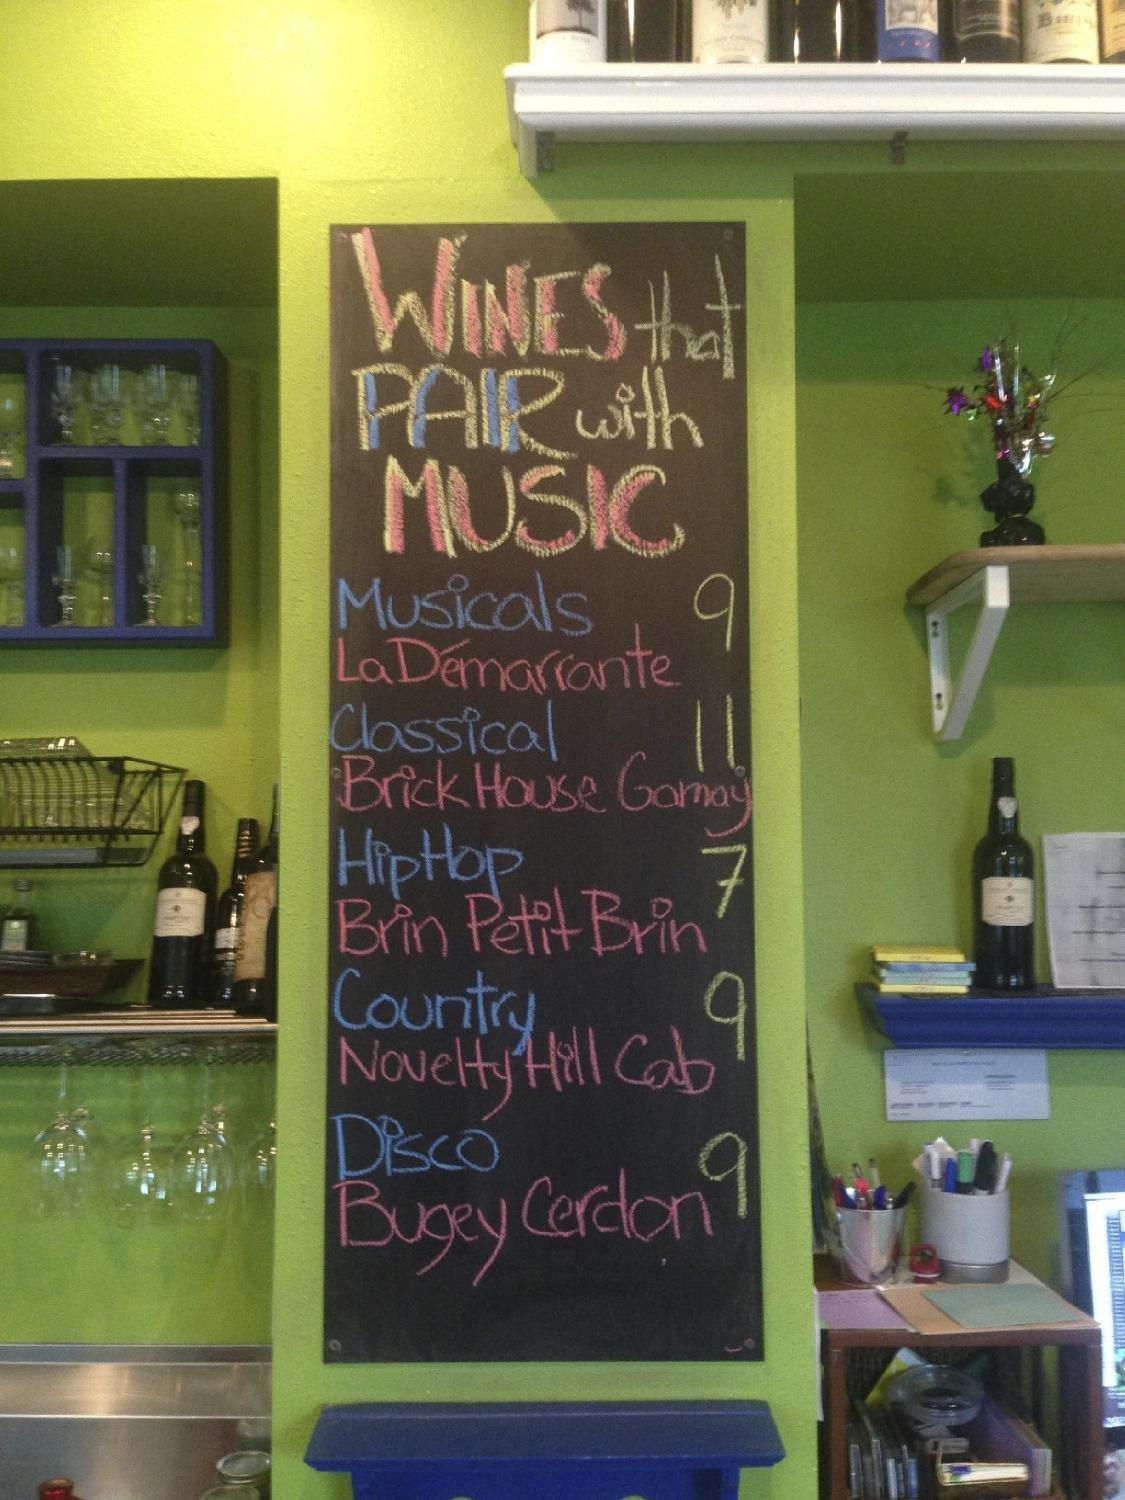 WINES that
PAIR with
MUSIC
Musicals 9
La Démarrante
Classical 11
Brick House Gamay
HipHop 7
Brin Petit Brin
Country 9
Novelty Hill Cab
Disco 9
Bugey Cerdon